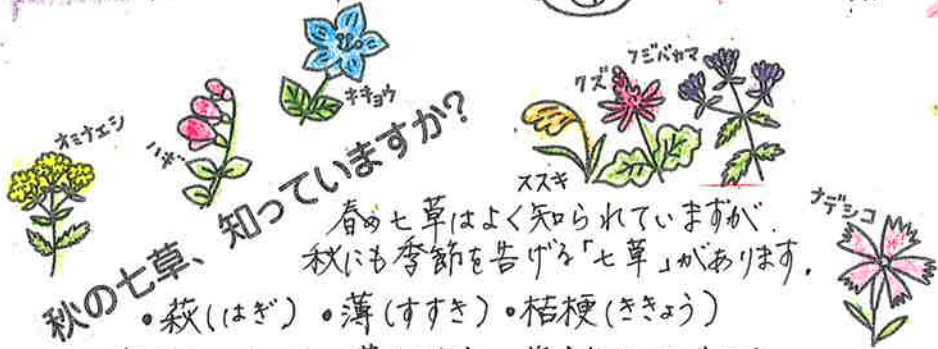 オミナエシ
ハギ
キキョウ
ススキ
クズ
フジバカマ
ナデシコ
秋の七草、知っていますか?
春の七草はよく知られていますが、
秋にも季節を告げる「七草」があります。
•萩(はぎ) •薄(すすき) •桔梗(ききょう)